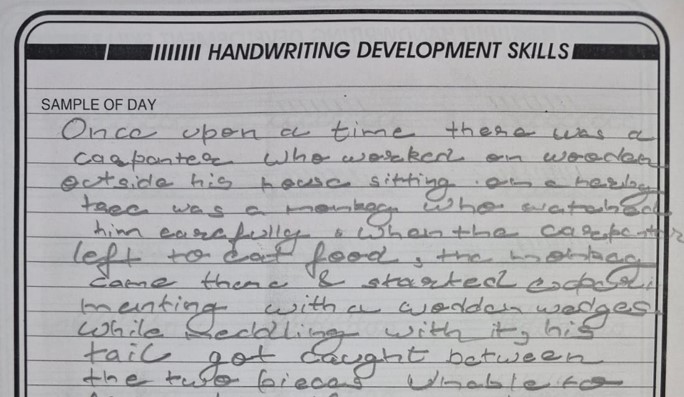 HANDWRITING DEVELOPMENT SKILLS
SAMPLE OF DAY
Once upon a time there was a
carpanter who worked on wooden
outside his house sitting on a nearby
tree was a monkey who watched
him carefully, when the carpenter
left to eat food, the monkey
came there & started experi
menting with a wooden wedges
while meddling with it, his
tail got caught between
the two pieces Unable to